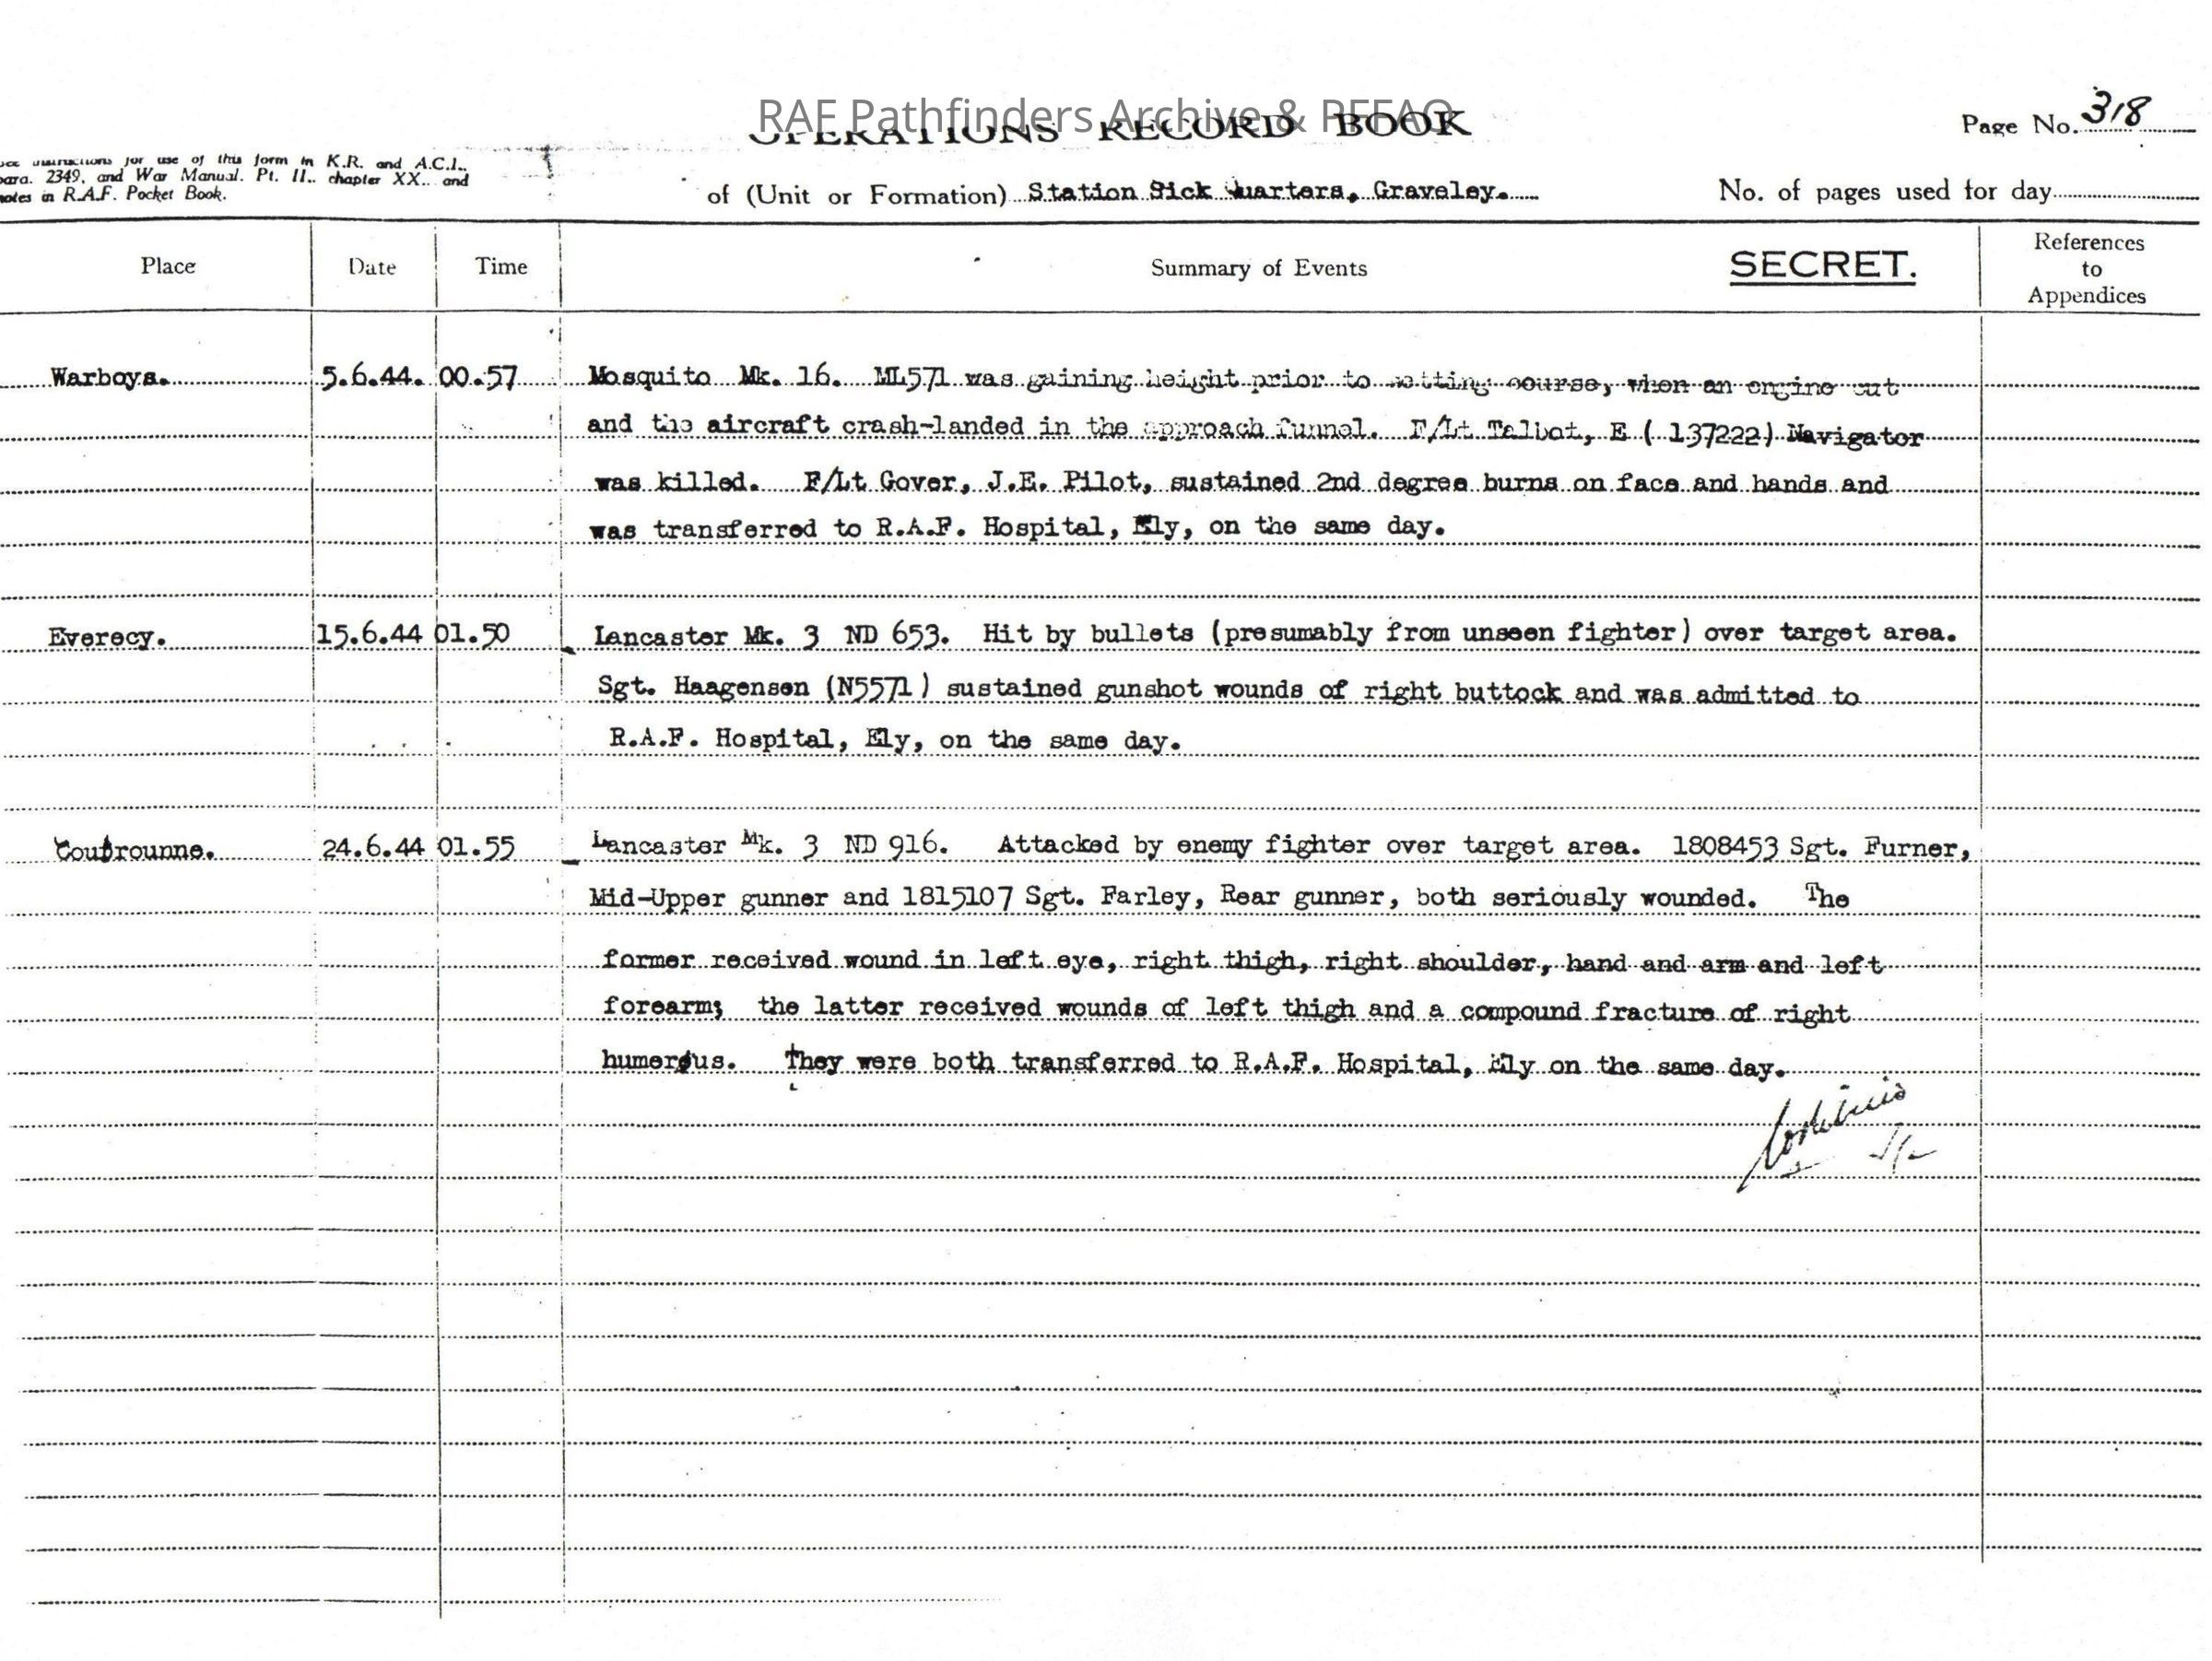 RAF Pathfinders Archive & PFFAO
OPERATIONS RECORD BOOK
Page No. 318
See instructions for use of this form in K.R. and A.C.I.,
para. 2349, and War Manual. Pt. II., chapter XX., and
notes in R.A.F. Pocket Book.
of (Unit or Formation) Station Sick Quarters, Graveley.
No. of pages used for day
Place Date Time Summary of Events SECRET. References to Appendices
Warboys. 5.6.44. 00.57 Mosquito Mk. 16. ML571 was gaining height prior to setting course, when an engine cut
and the aircraft crash-landed in the approach funnel. F/Lt Talbot, E ( 137222) Navigator
was killed. F/Lt Gover, J.E. Pilot, sustained 2nd degree burns on face and hands and
was transferred to R.A.F. Hospital, Ely, on the same day.
Everecy. 15.6.44 01.50 Lancaster Mk. 3 ND 653. Hit by bullets (presumably from unseen fighter) over target area.
Sgt. Haagensen (N5571) sustained gunshot wounds of right buttock and was admitted to
R.A.F. Hospital, Ely, on the same day.
24.6.44 01.55 Lancaster Mk. 3 ND 916. Attacked by enemy fighter over target area. 1808453 Sgt. Furner,
Mid-Upper gunner and 1815107 Sgt. Farley, Rear gunner, both seriously wounded. The
former received wound in left eye, right thigh, right shoulder, hand and arm and left
forearm; the latter received wounds of left thigh and a compound fracture of right
humerus. They were both transferred to R.A.F. Hospital, Ely on the same day.